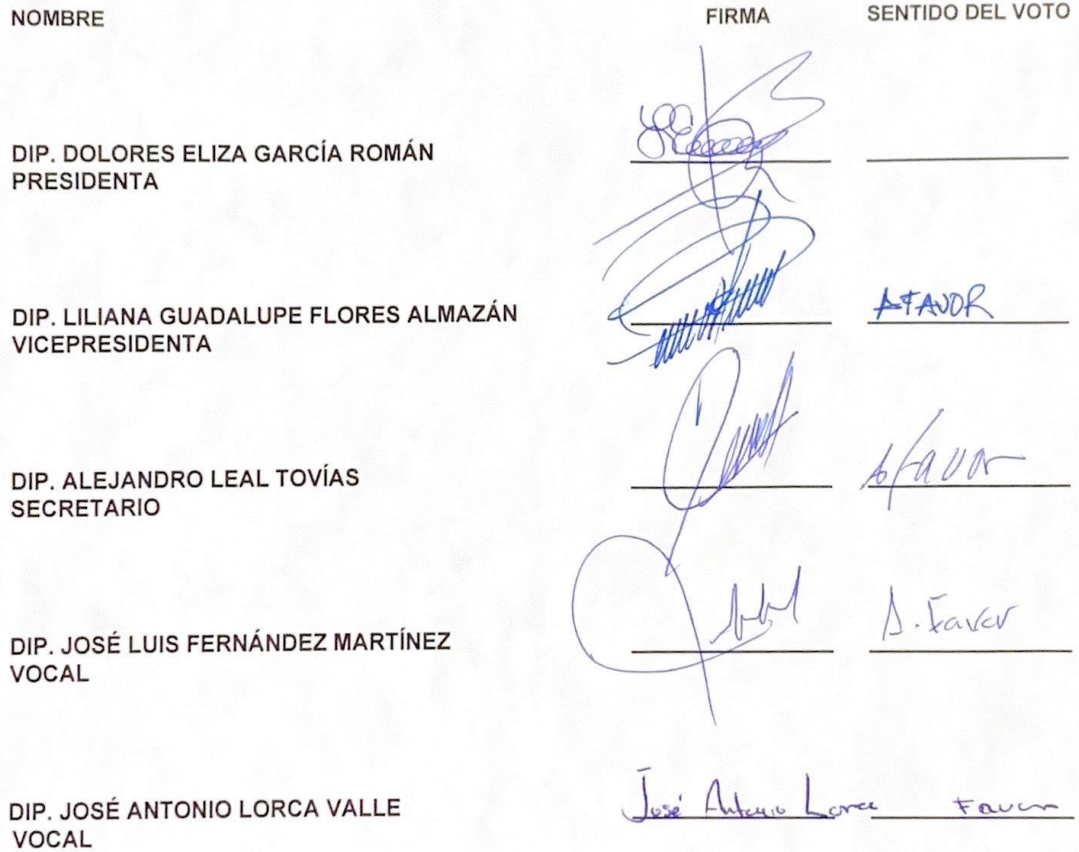 NOMBRE FIRMA SENTIDO DEL VOTO
DIP. DOLORES ELIZA GARCÍA ROMÁN
PRESIDENTA
DIP. LILIANA GUADALUPE FLORES ALMAZÁN AFAVOR
VICEPRESIDENTA
DIP. ALEJANDRO LEAL TOVÍAS a favor
SECRETARIO
DIP. JOSÉ LUIS FERNÁNDEZ MARTÍNEZ A. Favor
VOCAL
DIP. JOSÉ ANTONIO LORCA VALLE José Antonio Lorca Favor
VOCAL